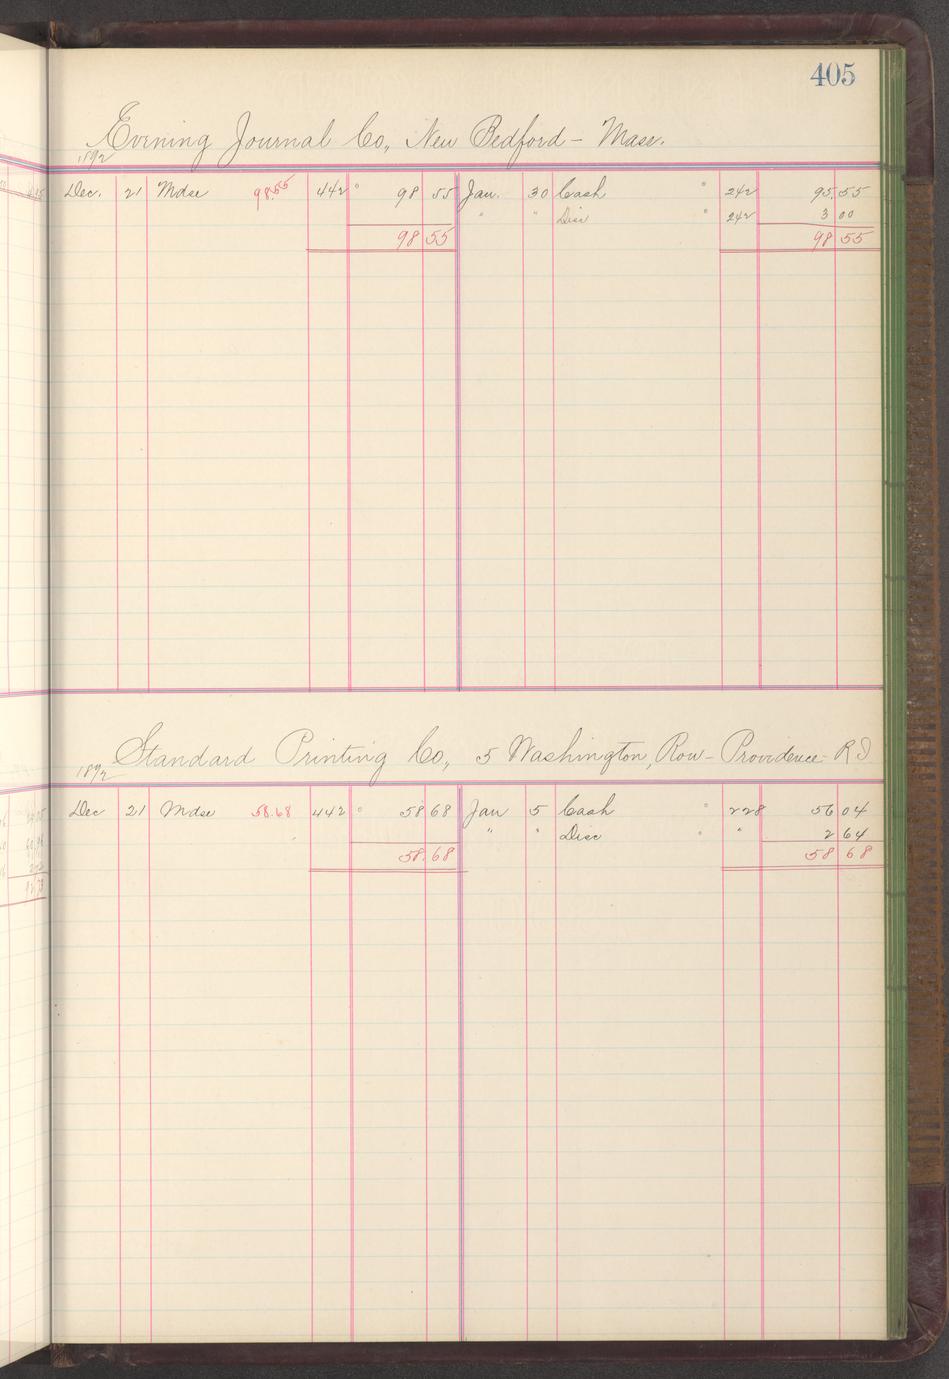 405
Evening Journal Co., New Bedford - Mass.
1892
Dec. 21 Mdse 98.55 442 98 55 Jan. 30 Cash 242 95.55
" " Disc 242 3 00
98 55 98 55
Standard Printing Co., 5 Washington Row - Providence - R I
1892
Dec 21 Mdse 58.68 442 58 68 Jan 5 Cash 228 56 04
" " Disc " 2 64
58.68 58 68